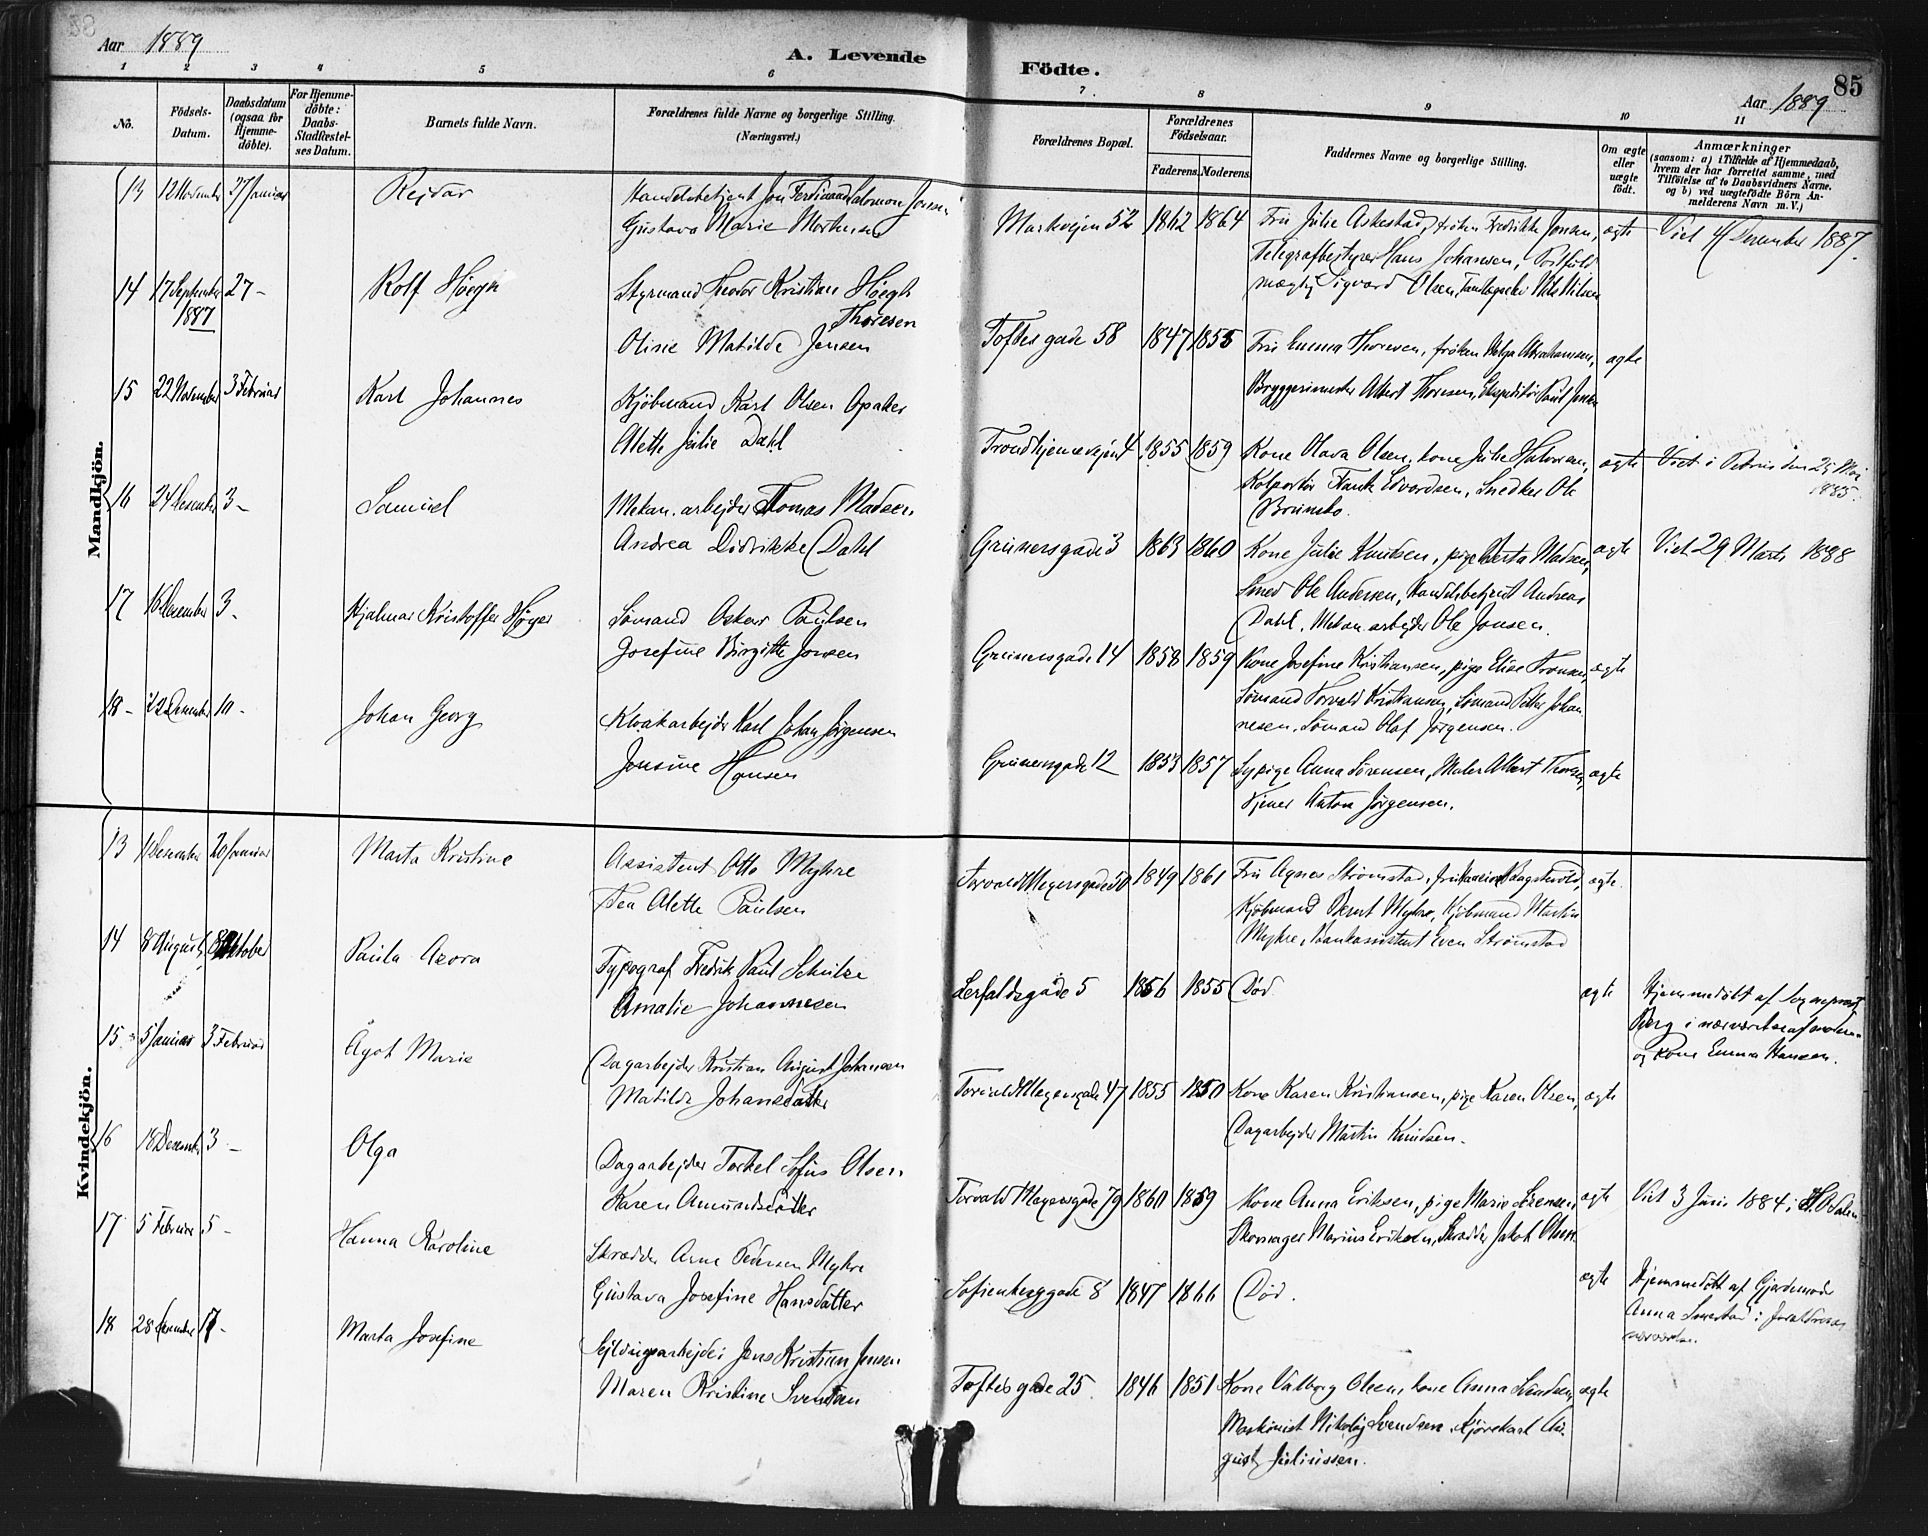 Aar 1889
A. Levende Födte.
85
Aar 1889
1 2 3 4 5 6 7 8 9 10 11
No.
Födsels-Datum.
Daabsdatum (ogsaa for Hjemme-döbte).
For Hjemme-döbte: Daabs-Stadfæstel-ses Datum.
Barnets fulde Navn.
Forældrenes fulde Navne og borgerlige Stilling. (Næringsvei.)
Forældrenes Bopæl.
Forældrenes Födselsaar.
Faderens. Moderens.
Faddernes Navne og borgerlige Stilling.
Om ægte eller uægte födt.
Anmærkninger
(saasom: a) i Tilfælde af Hjemmedaab,
hvem der har forrettet samme, med
Tilföielse af to Daabsvidners Navne,
og b) ved uægtefödte Börn An-
melderens Navn m. V.)
Mandkjön.
13 12 November 27 Januar Rejdar Handelsbetjent Jon Ferdinand Salomon Jensen
Gustava Marie Mortensen
Markvejen 52 1862 1864 Fru Julie Askestad, frøken Fredrikke Jensen, ægte Viet 4 December 1887.
Telegrafbestyrer Hans Johansen, Postfuld-
mægtig Sigvard Olsen, Nils Nilsen
14 17 September 1887 27 - Rolf Høegh Styrmand Teodor Kristian Høegh
Thoresen
Olise Matilde Jensen
Toftesgade 58 1847 1855 Fru Emma Thoresen, frøken Helga Abrahamsen, ægte
Bryggerimester Albert Thoresen, Ekspeditør Paul Jensen
15 22 November 3 Februar Karl Johannes Kjøbmand Karl Olsen Opaker
Alette Julie Dahl
Trondhjemsvejen 4 1855 1859 Kone Olava Olsen, kone Julie Halvorsen, ægte Viet i Petrus den 25 Mai
1885.
Kolportør Frants Edvardsen, Snedker Ole
16 24 Desember 3 - Samuel Mekan. arbejder Tomas Madsen
Andrea Didrikke Dahl
Grünersgade 3 1863 1860 Kone Julie Knudsen, pige Berta Madsen, ægte Viet 29 Marts 1888
Smed Ole Andersen, Handelsbetjent Andreas
Dahl, Mekan. arbejder Ole Jensen.
17 16 Desember 3 - Hjalmar Kristoffer Høyer Sømand Oskar Paulsen
Josefine Birgitte Jensen
Grünersgade 14 1858 1859 Kone Josefine Kristiansen, pige Elise Fronsen, ægte
Sømand Torvald Kristiansen, Sømand Petter Johan
nesen, Sømand Olaf Jørgensen.
18 - 22 Desember 10 - Johan Georg Kloakarbejder Karl Johan Jørgensen
Jensine Hansen
Grünersgade 12 1853 1857 Sypige Anna Sørensen, Maler Albert Thoresen, ægte
Tjener Anton Jørgensen.
Kvindekjön.
13 1 Desember 20 Januar Marta Kristine Assistent Otto Myhre
Tea Alette Paulsen
Torvald Meyersgade 50 1849 1861 Fru Agnes Strømstad, ægte.
Kjøbmand Bernt Myhre, Kjøbmand Martin
Myhre, Bankassistent Even Strømstad
14 8 August 8 Oktober Paula Azora Typograf Fredrik Paul Schulze
Amalie Johannesen
Lerfaldsgade 5 1856 1855 Død ægte Hjemmedøbt af Sogneprest
Berg i nærværelse af moder
og Kone Emma Hansen.
15 5 Januar 3 Februar Ågot Marie Dagarbejder Kristian August Johansen
Matilde Johansdatter
Torvald Meyersgade 47 1855 1850 Kone Karen Kristiansen, pige Karen Olsen, ægte
Dagarbejder Martin Knudsen.
16 18 Desember 3 - Olga Dagarbejder Torkel Sofus Olsen
Karen Amundsdatter
Torvald Meyersgade 79 1860 1859 Kone Anna Eriksen, pige Marie Sørensen, ægte Viet 3 Juni 1884 i
Skomager Marius Eriksen, Skrædder Jakob Olsen
17 5 Februar 5 - Hanna Karoline Skrædder Arne Pedersen Myhre
Gustava Josefine Hansdatter
Sofienberggade 8 1847 1866 Død. ægte Hjemmedøbt af Gjordemoder
Anna i Forældrenes
nærværelse.
18 28 Desember 17 - Marta Josefine Fyldningsarbejder Jens Kristian Jensen
Maren Kristine Svendsen
Toftesgade 25 1846 1851 Kone Valborg Olsen, kone Anna Svendsen, ægte
Maskinist Nikolaj Svendsen, Kjørekarl Au
gust Juliussen.